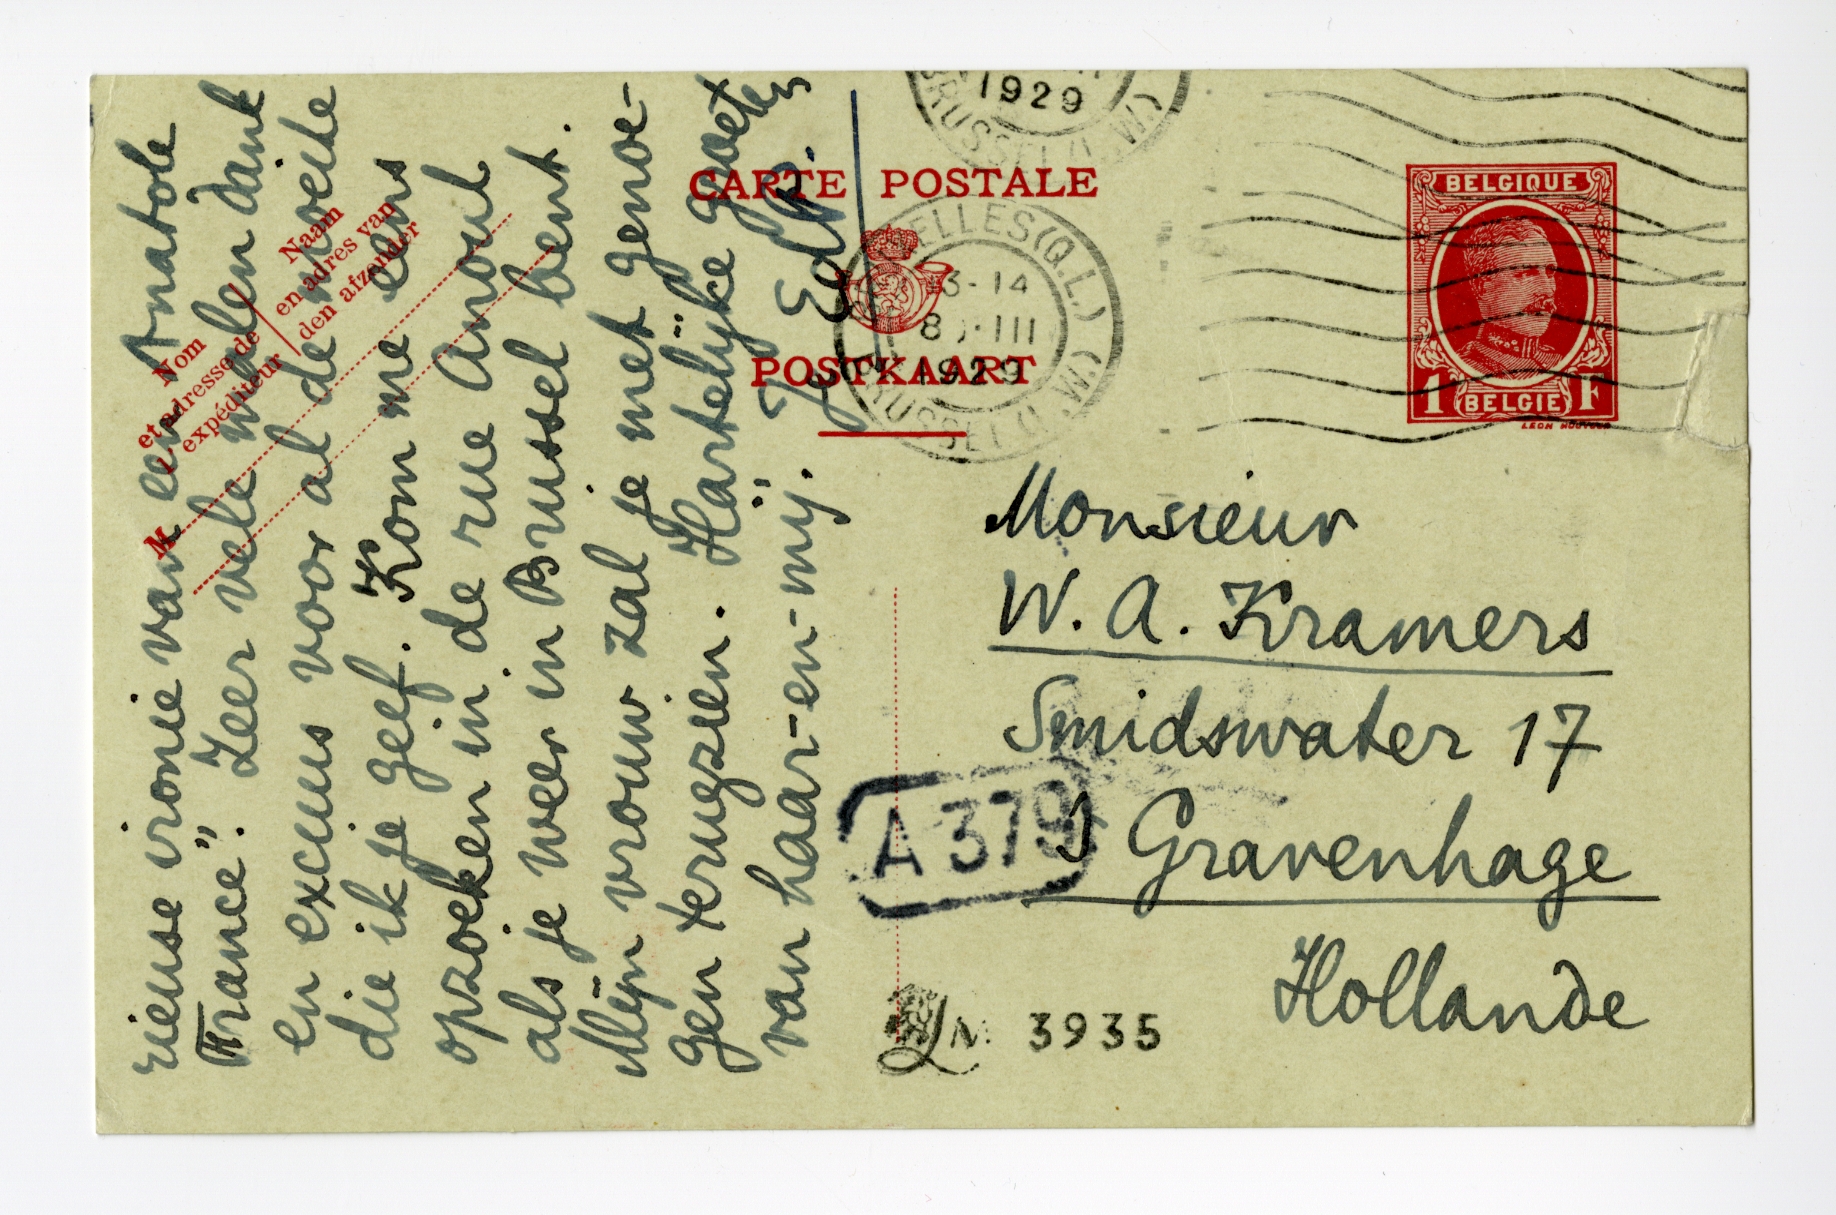 rieuse ironie van een Anatole
France". Zeer vele malen dank
en excuus voor al de moeite
die ik je geef. Kom me eens
opzoeken in de rue Anoul
als je weer in Brussel bent.
Mijn vrouw zal je met genoe-
gen terugzien. Hartelijke groeten
van haar-en-mij.
EdP.
Nom
et adresse de
expéditeur
Naam
en adres van
den afzender
M
CARTE POSTALE
POSTKAART
1929
BRUSSEL (L.W.)
ELLES (Q.L.)
13-14
8 III
1929
BRUSSEL (L.W.)
BELGIQUE
1 BELGIE F
Monsieur
W. A. Kramers
Smidswater 17
s Gravenhage
Hollande
A 379
No 3935